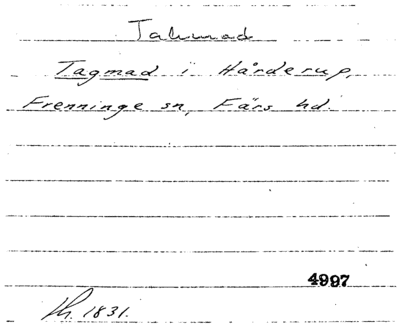 Takmad
Tagmad i Hårderup,
Frenninge sn, Färs hd.
4997
Th. 1831.